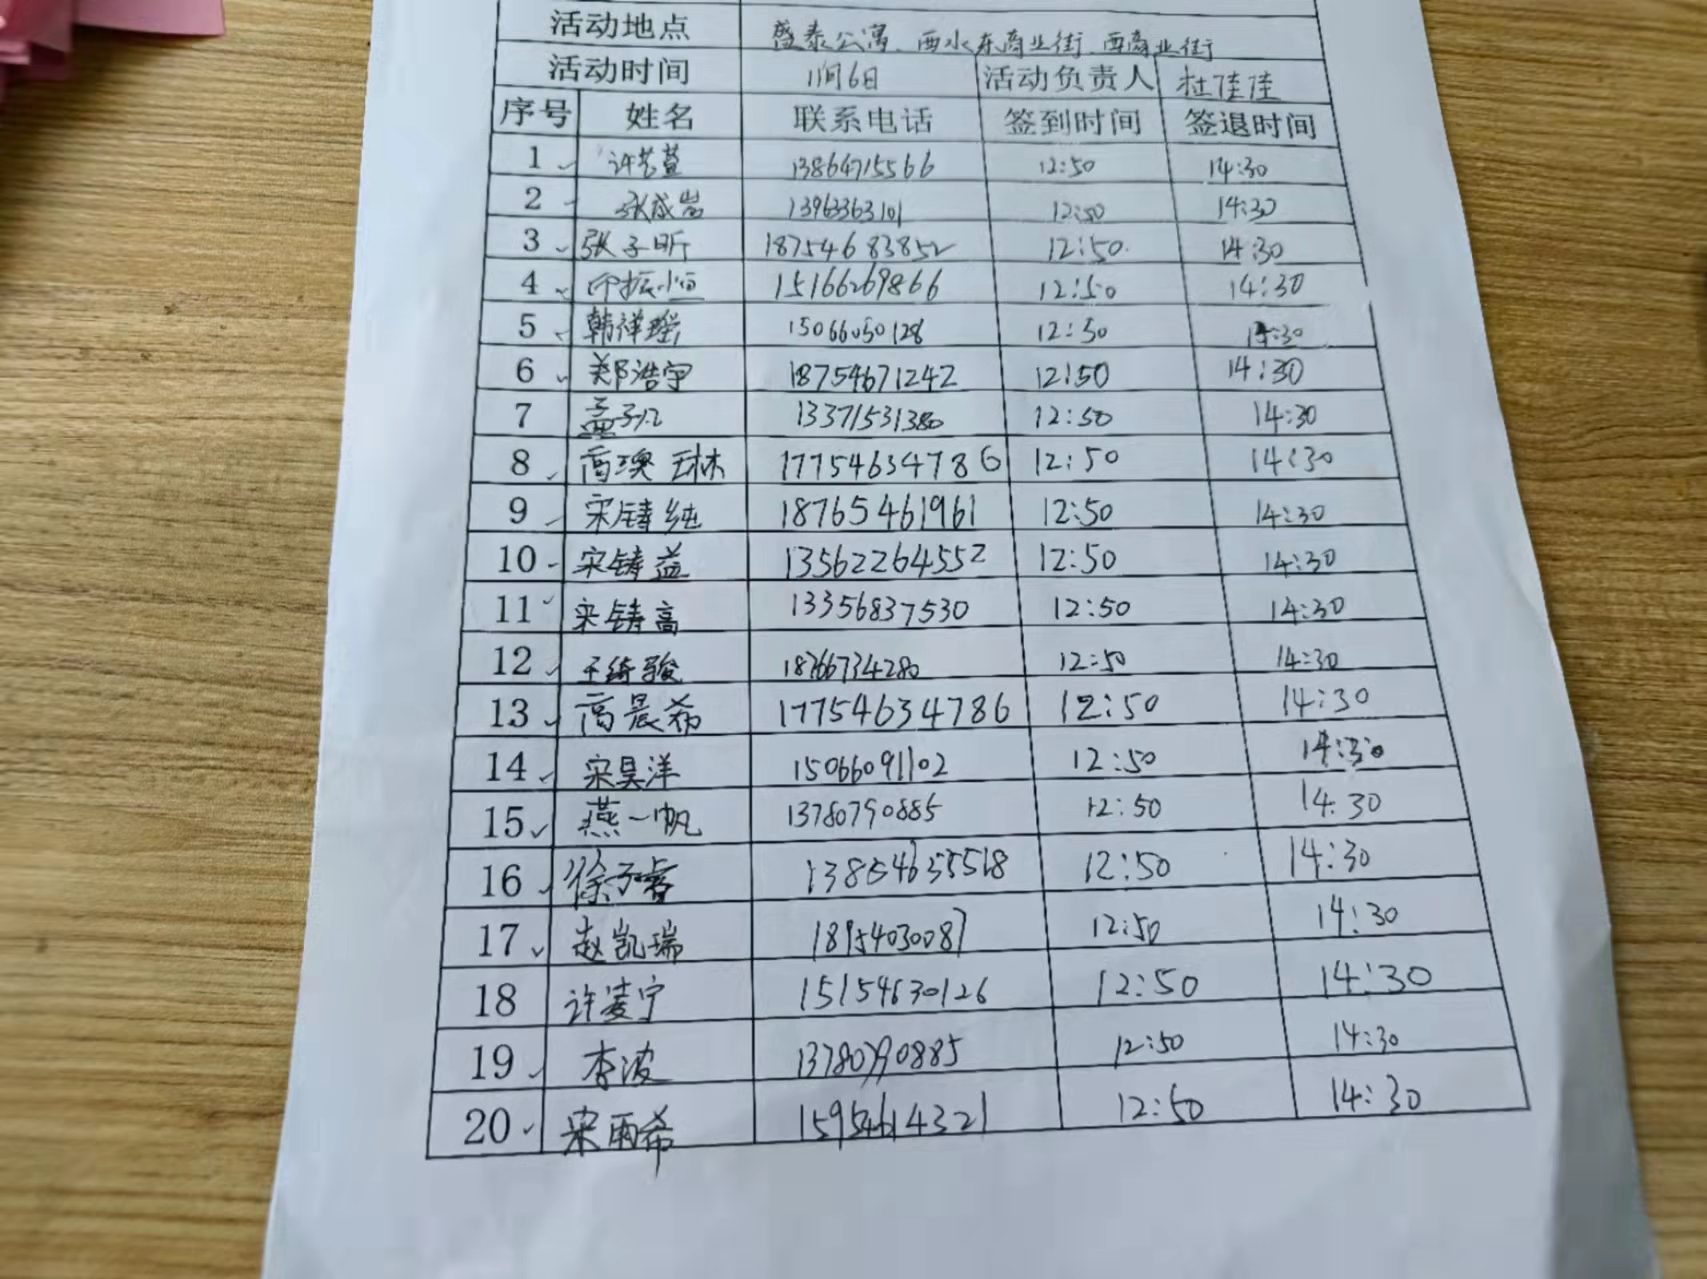 活动地点 盛泰公寓、西水东商业街、西商业街
活动时间 11月6日 活动负责人 杜佳佳
序号 姓名 联系电话 签到时间 签退时间
1 许艺萱 13864715566 12:50 14:30
2 张成岩 13963363101 12:50 14:30
3 张子昕 18754683852 12:50 14:30
4 印振恒 15166269866 12:50 14:30
5 韩祥瑶 15066050128 12:50 14:30
6 郑浩宇 18754671242 12:50 14:30
7 孟 13371531380 12:50 14:30
8 高琪琳 17754634786 12:50 14:30
9 宋铸纯 18765461961 12:50 14:30
10 宋铸益 13562264552 12:50 14:30
11 宋铸高 13356837530 12:50 14:30
12 王绮骏 18766734280 12:50 14:30
13 高晨希 17754634786 12:50 14:30
14 宋昊洋 15066091102 12:50 14:30
15 燕一帆 13780790885 12:50 14:30
16 徐子睿 13854635518 12:50 14:30
17 赵凯瑞 18954030087 12:50 14:30
18 许菱宁 15154630126 12:50 14:30
19 李波 13780790885 12:50 14:30
20 宋雨希 15954614321 12:50 14:30